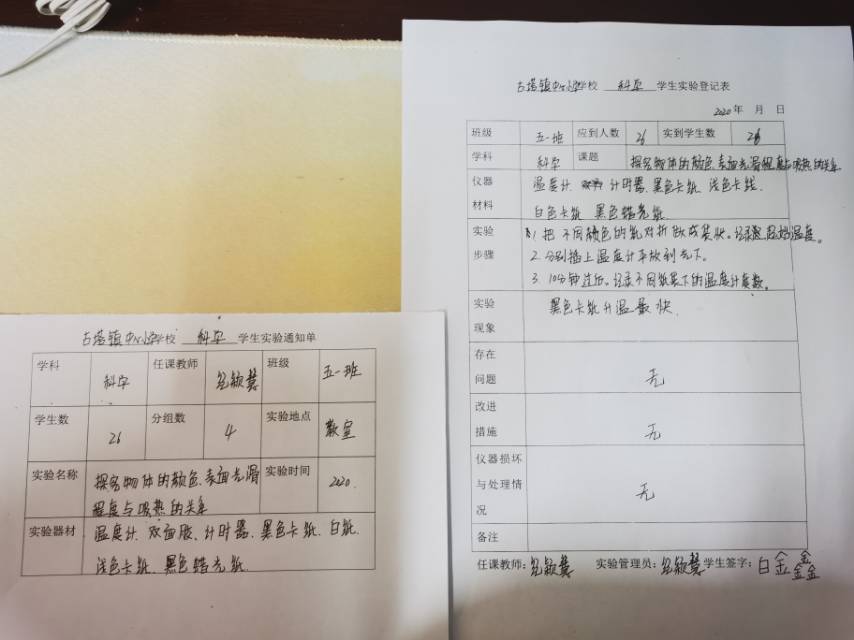 古塔镇中心小学校 科学 学生实验登记表
2020年 月 日
班级 五一班 应到人数 26 实到学生数 26
学科 科学 课题 探究物体的颜色、表面光滑程度与吸热的关系
仪器材料 温度计、计时器、黑色卡纸、浅色卡纸、
白色卡纸、黑色蜡光纸
实验步骤 1. 把不同颜色的纸对折做成袋状。记录起始温度。
2. 分别插上温度计平放到光下。
3. 10分钟过后。记录不同纸袋下的温度计度数。
实验现象 黑色卡纸升温最快
存在问题 无
改进措施 无
仪器损坏与处理情况 无
备注
任课教师: 实验管理员: 学生签字:白金鑫
古塔镇中心小学校 科学 学生实验通知单
学科 科学 任课教师 班级 五一班
学生数 26 分组数 4 实验地点 教室
实验名称 探究物体的颜色、表面光滑 实验时间 2020.
程度与吸热的关系
实验器材 温度计、双面胶、计时器、黑色卡纸、白纸、
浅色卡纸、黑色蜡光纸